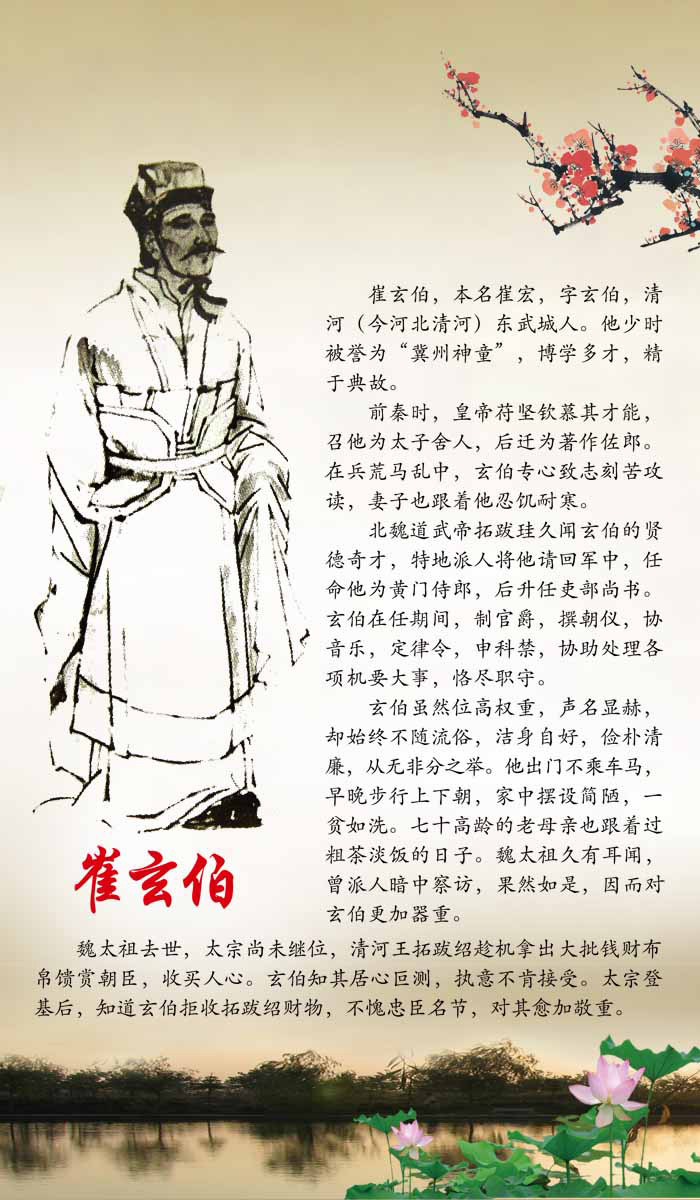 崔玄伯，本名崔宏，字玄伯，清
河（今河北清河）东武城人。他少时
被誉为“冀州神童”，博学多才，精
于典故。
前秦时，皇帝苻坚钦慕其才能，
召他为太子舍人，后迁为著作佐郎。
在兵荒马乱中，玄伯专心致志刻苦攻
读，妻子也跟着他忍饥耐寒。
北魏道武帝拓跋珪久闻玄伯的贤
德奇才，特地派人将他请回军中，任
命他为黄门侍郎，后升任吏部尚书。
玄伯在任期间，制官爵，撰朝仪，协
音乐，定律令，申科禁，协助处理各
项机要大事，恪尽职守。
玄伯虽然位高权重，声名显赫，
却始终不随流俗，洁身自好，俭朴清
廉，从无非分之举。他出门不乘车马，
早晚步行上下朝，家中摆设简陋，一
贫如洗。七十高龄的老母亲也跟着过
粗茶淡饭的日子。魏太祖久有耳闻，
曾派人暗中察访，果然如是，因而对
玄伯更加器重。
崔玄伯
魏太祖去世，太宗尚未继位，清河王拓跋绍趁机拿出大批钱财布
帛馈赏朝臣，收买人心。玄伯知其居心叵测，执意不肯接受。太宗登
基后，知道玄伯拒收拓跋绍财物，不愧忠臣名节，对其愈加敬重。